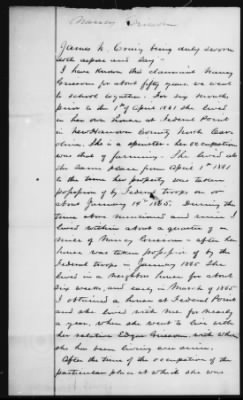 Nancy Grissom
James N. Craig being duly sworn
doth depose and say -
I have known this claimant Nancy
Grissom for about fifty years we went
to school together. For six months
prior to the 1st of April 1861 she lived
in her own house at Federal Point
in New Hanover County North Caro-
lina. She is a spinster - her occupation
was that of farming. She lived at
the same place from April 1st 1861
to the time her property was taken
possession of by Federal troops on or
about January 15th 1865. During the
time above mentioned and since I
lived within about a quarter of a
mile of Nancy Grissom - after her
house was taken possession of by the
Federal troops in January 1865 she
lived in a neighbor house for about
six weeks, and early in March of 1865
I obtained a house at Federal Point
and she lived with me for nearly
a year, when she went to live with
her relative Edgar Grissom with whom
she has been living ever since.
After the time of the occupation of the
particular place at which she was